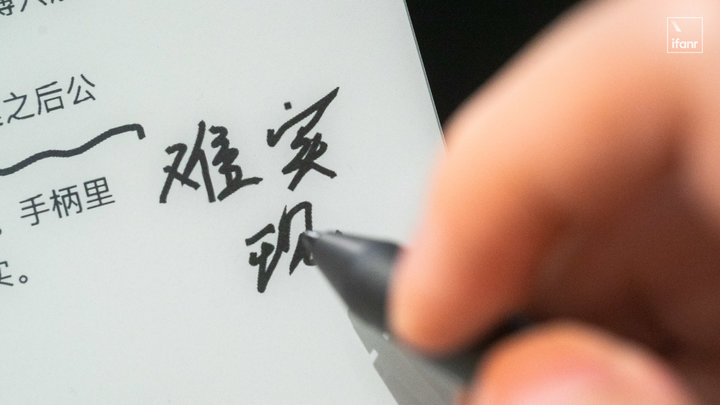 之后公
手柄里
实。
难实
现
ifanr